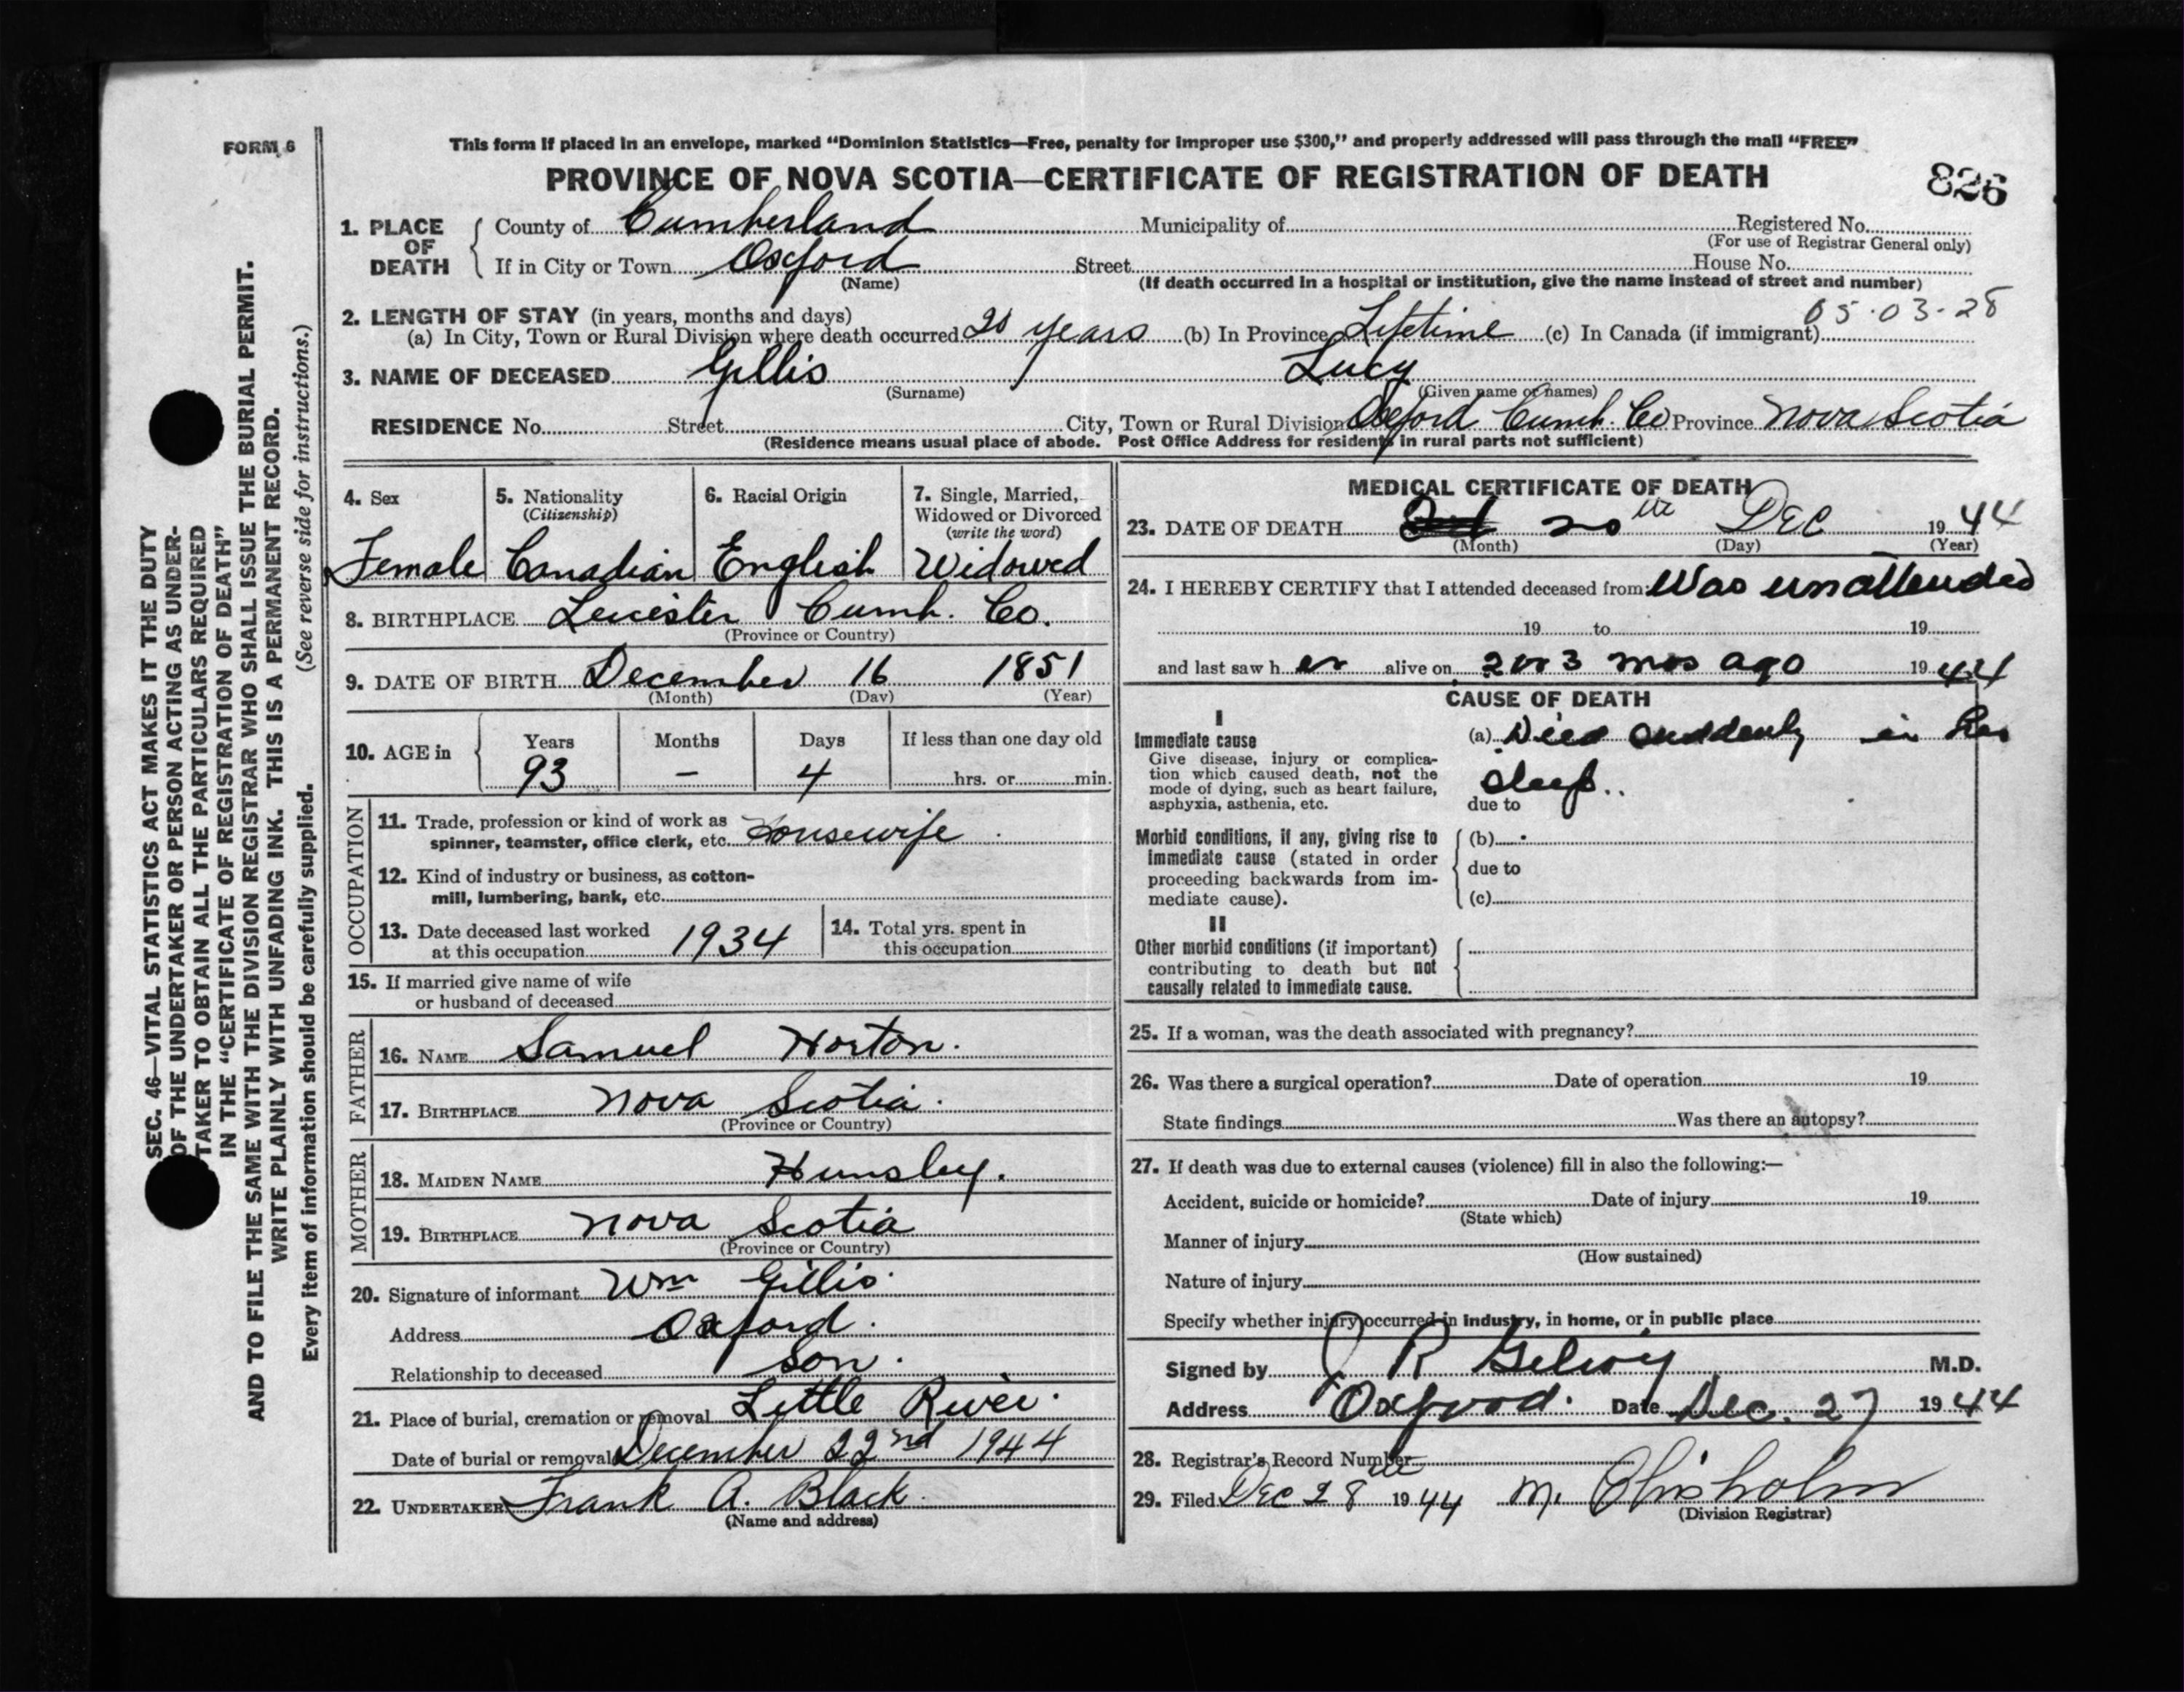 FORM 6
This form if placed in an envelope, marked “Dominion Statistics—Free, penalty for improper use $300,” and properly addressed will pass through the mail “FREE”
PROVINCE OF NOVA SCOTIA—CERTIFICATE OF REGISTRATION OF DEATH
826
1. PLACE OF DEATH
County of Cumberland Municipality of Registered No.
(For use of Registrar General only)
If in City or Town Oxford Street House No.
(Name) (If death occurred in a hospital or institution, give the name instead of street and number)
05·03·28
2. LENGTH OF STAY (in years, months and days)
(a) In City, Town or Rural Division where death occurred 20 years (b) In Province Lifetime (c) In Canada (if immigrant)
3. NAME OF DECEASED Gillis, Lucy
(Surname) (Given name or names)
RESIDENCE No. Street City, Town or Rural Division Oxford Cumb. Co Province Nova Scotia
(Residence means usual place of abode. Post Office Address for residents in rural parts not sufficient)
4. Sex
Female
5. Nationality
(Citizenship)
Canadian
6. Racial Origin
English
7. Single, Married,
Widowed or Divorced
(write the word)
Widowed
8. BIRTHPLACE Leicester Cumb. Co.
(Province or Country)
9. DATE OF BIRTH December 16 1851
(Month) (Day) (Year)
10. AGE in
Years Months Days If less than one day old
93 — 4 hrs. or min.
OCCUPATION
11. Trade, profession or kind of work as
spinner, teamster, office clerk, etc. Housewife
12. Kind of industry or business, as cotton-
mill, lumbering, bank, etc.
13. Date deceased last worked
at this occupation 1934
14. Total yrs. spent in
this occupation
15. If married give name of wife
or husband of deceased
FATHER
16. NAME Samuel Horton.
17. BIRTHPLACE Nova Scotia.
(Province or Country)
MOTHER
18. MAIDEN NAME Hunsley.
19. BIRTHPLACE Nova Scotia
(Province or Country)
20. Signature of informant Wm Gillis.
Address Oxford.
Relationship to deceased Son.
21. Place of burial, cremation or removal Little River.
Date of burial or removal December 22nd 1944
22. UNDERTAKER Frank A. Black.
(Name and address)
MEDICAL CERTIFICATE OF DEATH
23. DATE OF DEATH 20th Dec 1944
(Month) (Day) (Year)
24. I HEREBY CERTIFY that I attended deceased from Was unattended
19 to 19
and last saw h er alive on 2 or 3 mos ago 1944
CAUSE OF DEATH
I
Immediate cause
Give disease, injury or complica-
tion which caused death, not the
mode of dying, such as heart failure,
asphyxia, asthenia, etc.
(a) Died suddenly in her
sleep..
due to
Morbid conditions, if any, giving rise to
immediate cause (stated in order
proceeding backwards from im-
mediate cause).
(b)
due to
(c)
II
Other morbid conditions (if important)
contributing to death but not
causally related to immediate cause.
25. If a woman, was the death associated with pregnancy?
26. Was there a surgical operation? Date of operation 19
State findings Was there an autopsy?
27. If death was due to external causes (violence) fill in also the following:—
Accident, suicide or homicide? Date of injury 19
(State which)
Manner of injury
(How sustained)
Nature of injury
Specify whether injury occurred in industry, in home, or in public place
Signed by J R Gilroy M.D.
Address Oxford. Date Dec. 27 1944
28. Registrar's Record Number
29. Filed Dec 28th 1944 M. Chisholm
(Division Registrar)
SEC. 46—VITAL STATISTICS ACT MAKES IT THE DUTY
OF THE UNDERTAKER OR PERSON ACTING AS UNDER-
TAKER TO OBTAIN ALL THE PARTICULARS REQUIRED
IN THE “CERTIFICATE OF REGISTRATION OF DEATH”
AND TO FILE THE SAME WITH THE DIVISION REGISTRAR WHO SHALL ISSUE THE BURIAL PERMIT.
WRITE PLAINLY WITH UNFADING INK. THIS IS A PERMANENT RECORD.
Every item of information should be carefully supplied. (See reverse side for instructions.)